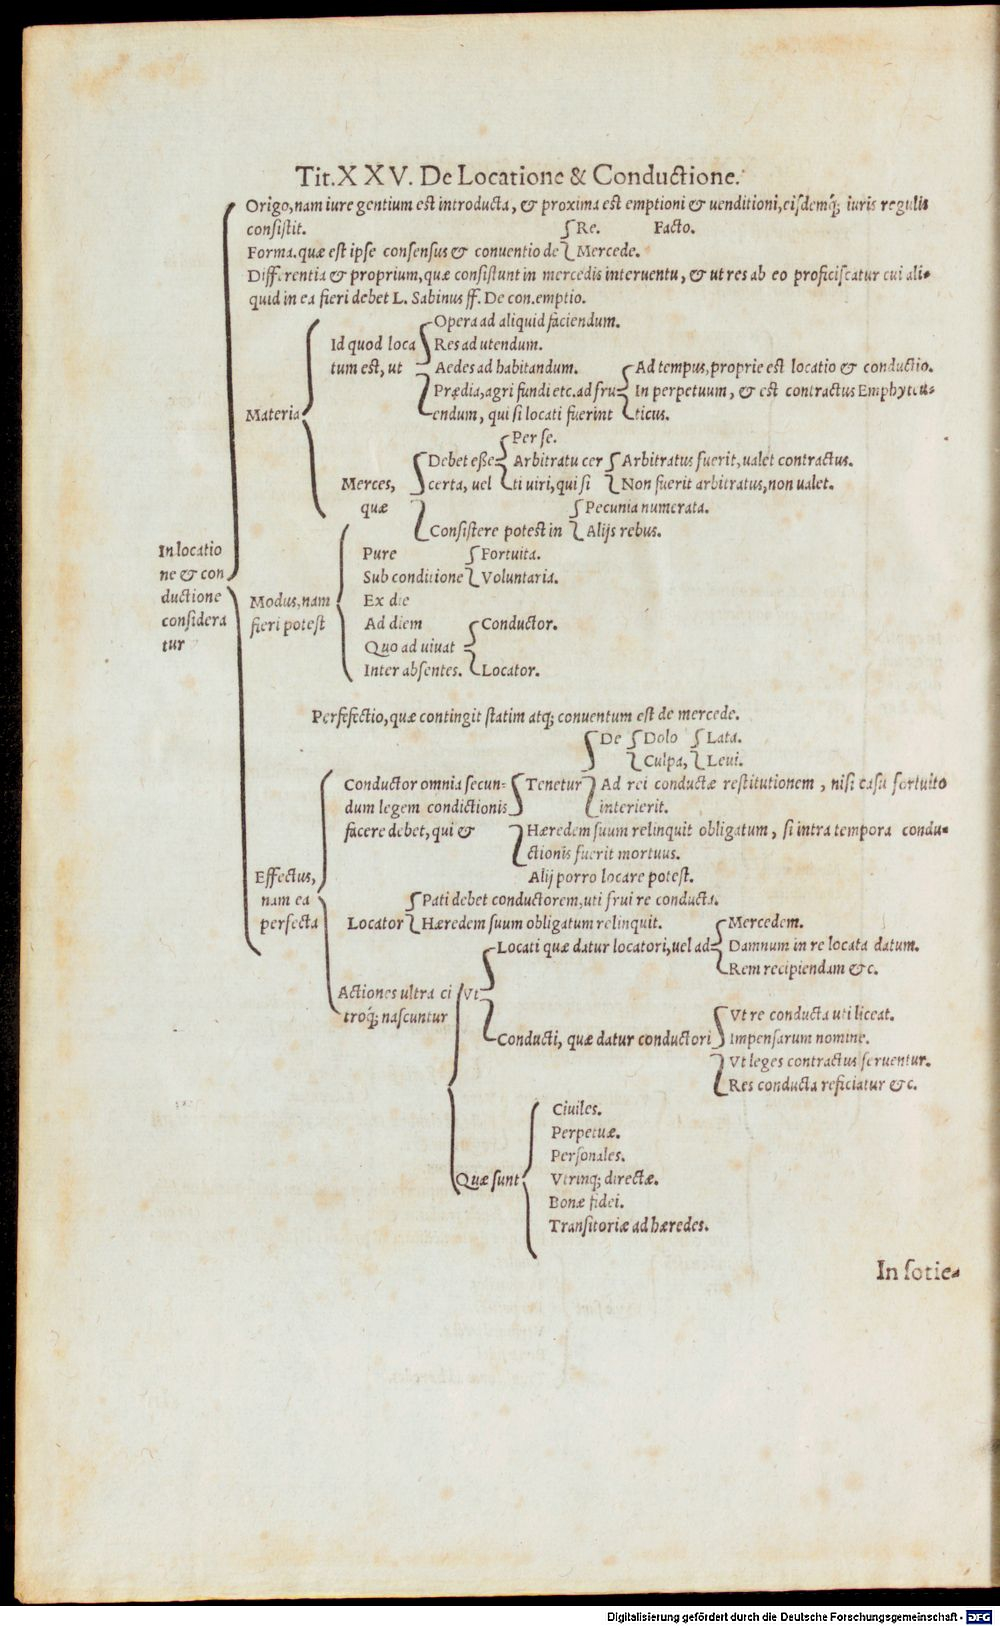 Tit. XXV. De Locatione & Conductione.
Origo, nam iure gentium est introducta, & proxima est emptioni & uenditioni, eisdemq́; iuris regulis
consistit. Re. Facto.
Forma. quæ est ipse consensus & conuentio de Mercede.
Differentia & proprium, quæ consistunt in mercedis interuentu, & ut res ab eo proficiscatur cui ali-
quid in ea fieri debet L. Sabinus ff. De con. emptio.
Opera ad aliquid faciendum.
Id quod loca Res ad utendum.
tum est, ut Aedes ad habitandum. Ad tempus, proprie est locatio & conductio.
Prædia, agri fundi etc. ad fru- In perpetuum, & est contractus Emphyteu-
Materia endum, qui si locati fuerint ticus.
Per se.
Debet eße Arbitratu cer Arbitratus fuerit, ualet contractus.
Merces, certa, uel ti uiri, qui si Non fuerit arbitratus, non ualet.
quæ Pecunia numerata.
Consistere potest in Alijs rebus.
In locatio Pure Fortuita.
ne & con Sub conditione Voluntaria.
ductione Modus, nam Ex die
considera fieri potest Ad diem Conductor.
tur Quo ad uiuat
Inter absentes. Locator.
Perfefectio, quæ contingit statim atq; conuentum est de mercede.
De Dolo Lata.
Culpa, Leui.
Conductor omnia secun- Tenetur Ad rei conductæ restitutionem, nisi casu fortuito
dum legem condictionis interierit.
facere debet, qui & Hæredem suum relinquit obligatum, si intra tempora condu-
ctionis fuerit mortuus.
Effectus, Alij porro locare potest.
nam ea Pati debet conductorem, uti frui re conducta.
perfecta Locator Hæredem suum obligatum relinquit. Mercedem.
Locati quæ datur locatori, uel ad Damnum in re locata datum.
Rem recipiendam &c.
Actiones ultra ci Vt
troq́; nascuntur Vt re conducta uti liceat.
Conducti, quæ datur conductori Impensarum nomine.
Vt leges contractus seruentur.
Res conducta reficiatur &c.
Ciuiles.
Perpetuæ.
Personales.
Quæ sunt Vtrinq; directæ.
Bonæ fidei.
Transitoriæ ad hæredes.
In sotie-
Digitalisierung gefördert durch die Deutsche Forschungsgemeinschaft - DFG